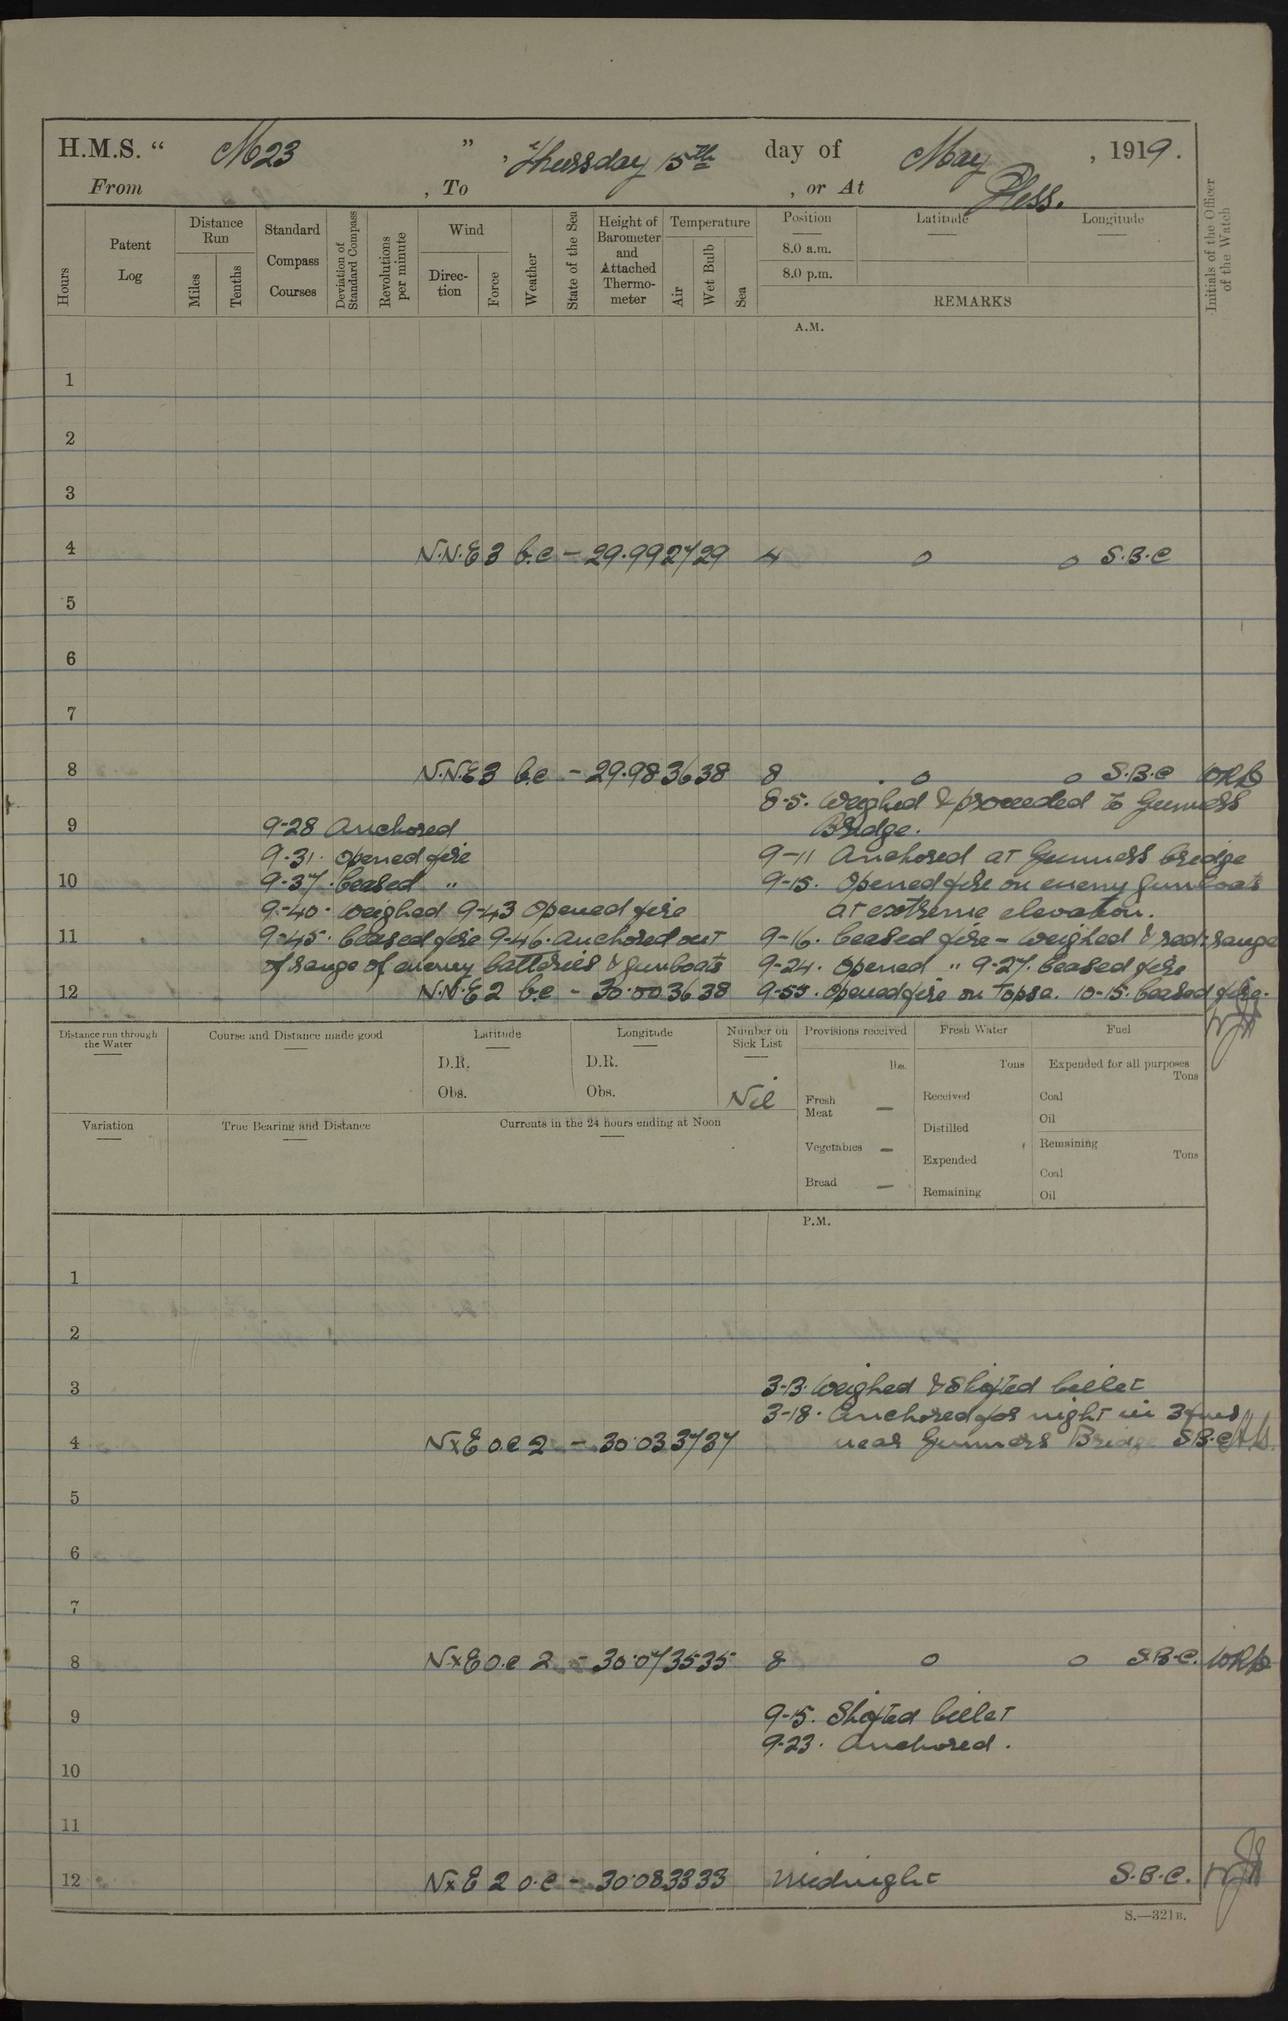 H.M.S. “ M23 ” , Thursday 15th day of May , 1919.
From , To , or At Pless.
Hours
Patent Log
Distance Run
Miles
Tenths
Standard Compass Courses
Deviation of Standard Compass
Revolutions per minute
Wind
Direction
Force
Weather
State of the Sea
Height of Barometer and Attached Thermometer
Temperature
Air
Wet Bulb
Sea
Position
8.0 a.m.
8.0 p.m.
Latitude
Longitude
REMARKS
Initials of the Officer of the Watch
A.M.
1
2
3
4 N.N.E 3 b.c - 29.99 27 29 4 o o S.B.C
5
6
7
8 N.N.E 3 b.c - 29.98 36 38 8 o o S.B.C
8-5. Weighed & proceeded to Gunners
Bridge.
9 9-28 Anchored
9-31. Opened fire
9-11 Anchored at Gunners bridge
10 9-37. Ceased "
9-15. Opened fire on enemy gunboats
9-40. Weighed 9-43 Opened fire
at extreme elevation.
11 9-45. Ceased fire 9-46. Anchored out
9-16. Ceased fire - Weighed & red: range
of range of enemy batteries & gunboats
9-24. Opened " 9-27. Ceased fire
12 N.N.E 2 b.c - 30.00 36 38 9-55. Opened fire on Topsa. 10-15. Ceased fire.
Distance run through the Water
Course and Distance made good
Latitude
D.R.
Obs.
Longitude
D.R.
Obs.
Number on Sick List
Nil
Provisions received
lbs.
Fresh Meat —
Vegetables —
Bread —
Fresh Water
Tons
Received
Distilled
Expended
Remaining
Fuel
Expended for all purposes
Tons
Coal
Oil
Remaining
Tons
Coal
Oil
Variation
True Bearing and Distance
Currents in the 24 hours ending at Noon
P.M.
1
2
3 3-13. Weighed & Shifted billet
3-18. Anchored for night in 3 fms
4 N x E o.c 2 - 30.03 37 37 near Gunners Bridge S.B.C
5
6
7
8 N x E o.c 2 - 30.07 35 35 8 o o S.B.C.
9 9-15. Shifted billet
9-23. Anchored.
10
11
12 N x E 2 o.c - 30.08 33 33 Midnight S.B.C.
S.—321B.